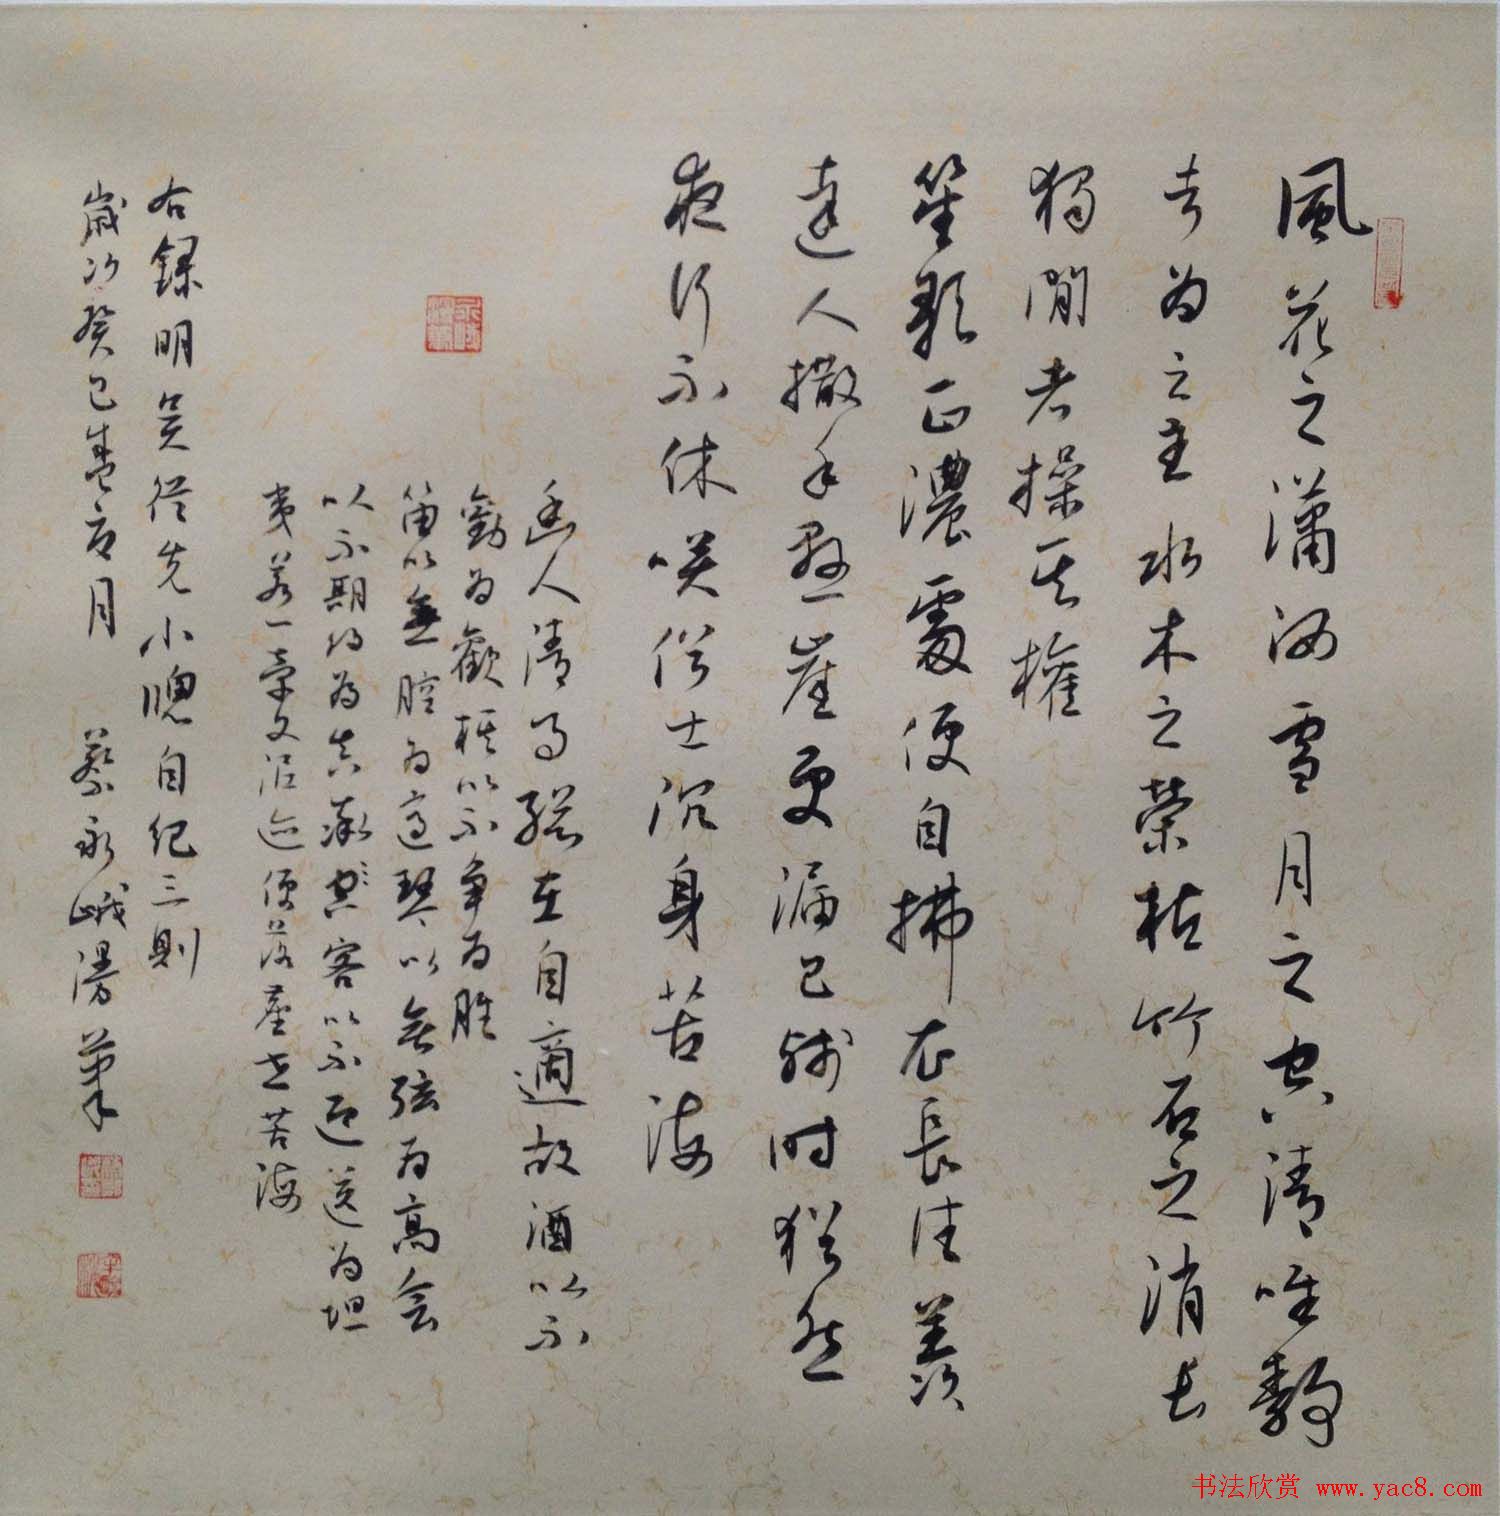 風花之瀟洒雪月之空清唯靜
者為之主水木之榮枯竹石之消长
獨閒者操其權
笙歌正濃處便自拂衣長往羨
達人撒手懸崖更漏已殘时猶然
夜行不休咲俗士沉身苦海
幽人清事総在自適故酒以不
勸為歡棋以不争為勝
笛以無腔為適琴以無弦為高会
以不期约為真率客以不迎送為坦
夷若一牽文泥迹便落塵世苦海
右録明吴從先小牕自纪三則
歲次癸巳 月 蔡永 漫筆
书法欣赏 www.yac8.com